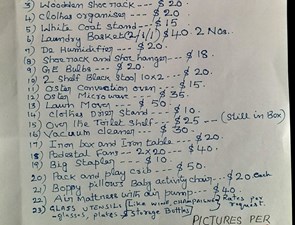 3) Woodden Shoe rack --- $ 20
4) Clothes organiser --- $ 20.
5) White Coat Stand --- $ 15
6) Laundry Basket (2/1/1) $ 40. 2 Nos.
7) De Humidifier --- $ 20.
8) Shoe rack and Shoe hanger --- $ 18.
9) GE Bulbs --- $ 20.
10) 2 Shelf Black Stool 10x2 -- $ 20.
11) Oster Convection oven -- $ 15.
12) Oster Microwave -- $ 35.
13) Lawn Mover --- $ 50.
14) Clothes Dryer Stand -- $ 10.
15) Over the Toilet Shelf -- $ 25 --- (Still in Box)
16) Vacuum cleaner --- $ 30.
17) Iron box and Iron table -- $ 20.
18) Pedestal Fans - 2x20 -- $ 40.
19) Big Stapler --- $ 10.
20) Pack and play crib --- $ 50.
21) Boppy pillows Baby activity chair, - $ 20 Each
22) Air Mattress with air pump -- $ 40.
23) GLASS UTENSILS (Like WINE, CHAMPAGNE) Rates for
glasses, plates & Storage Bottles
PICTURES PER